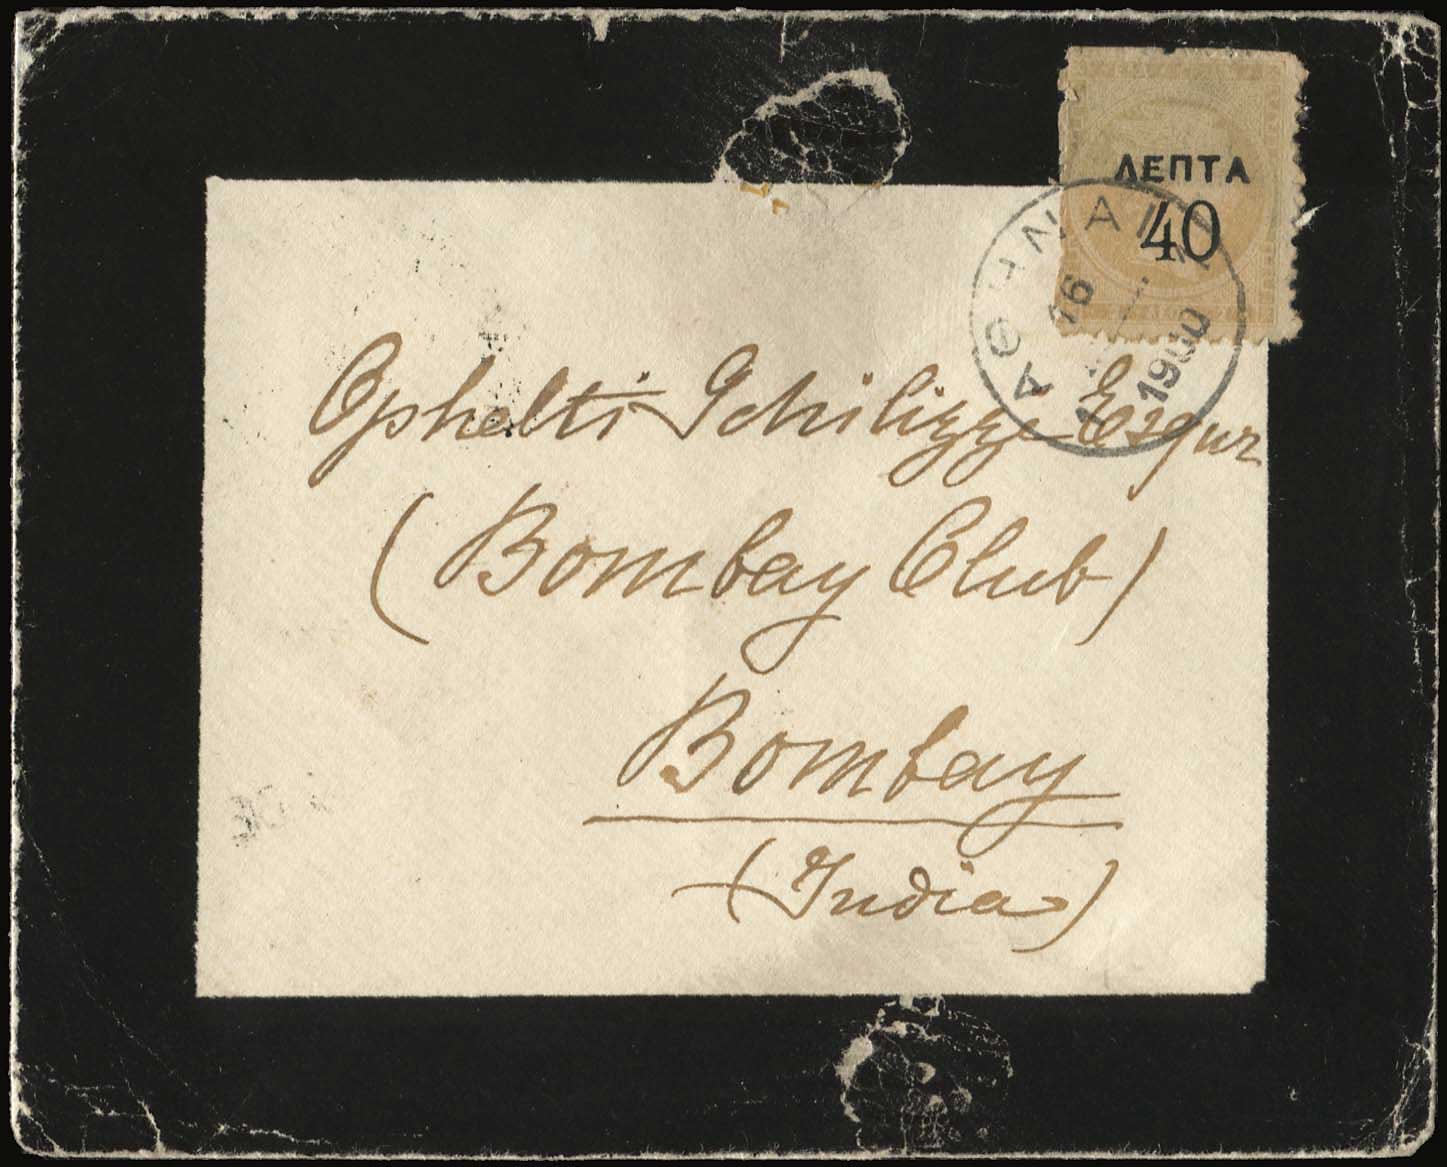 ΛΕΠΤΑ
40
ΑΘΗΝΑΙ
16
1900
Ophelti Schilizzi Esqur
(Bombay Club)
Bombay
(India)